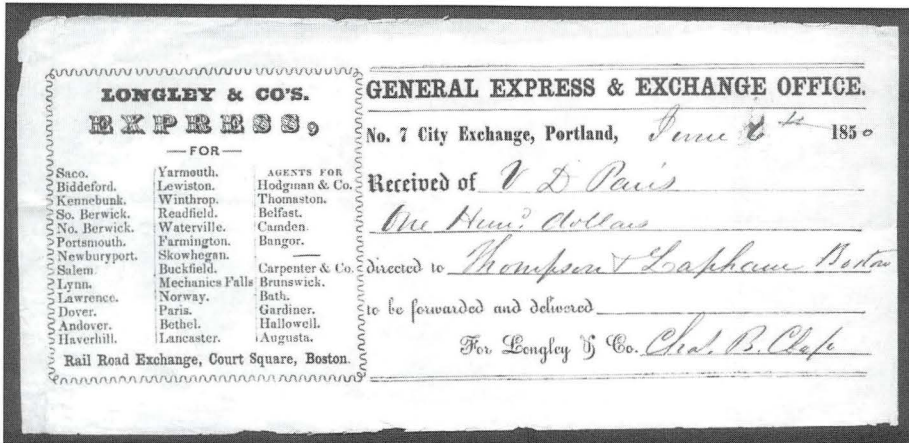 LONGLEY & CO'S.
EXPRESS,
—FOR—
Saco.
Biddeford.
Kennebunk.
So. Berwick.
No. Berwick.
Portsmouth.
Newburyport.
Salem.
Lynn.
Lawrence.
Dover.
Andover.
Haverhill.
Yarmouth.
Lewiston.
Winthrop.
Readfield.
Waterville.
Farmington.
Skowhegan.
Buckfield.
Mechanics Falls
Norway.
Paris.
Bethel.
Lancaster.
AGENTS FOR
Hodgman & Co.
Thomaston.
Belfast.
Camden.
Bangor.
Carpenter & Co.
Brunswick.
Bath.
Gardiner.
Hallowell.
Augusta.
Rail Road Exchange, Court Square, Boston.
GENERAL EXPRESS & EXCHANGE OFFICE.
No. 7 City Exchange, Portland, June 6th 1850
Received of V D Paris
One Hund. dollars
directed to Thompson & Lapham Boston
to be forwarded and delivered
For Longley & Co. Chas. B. Clapp